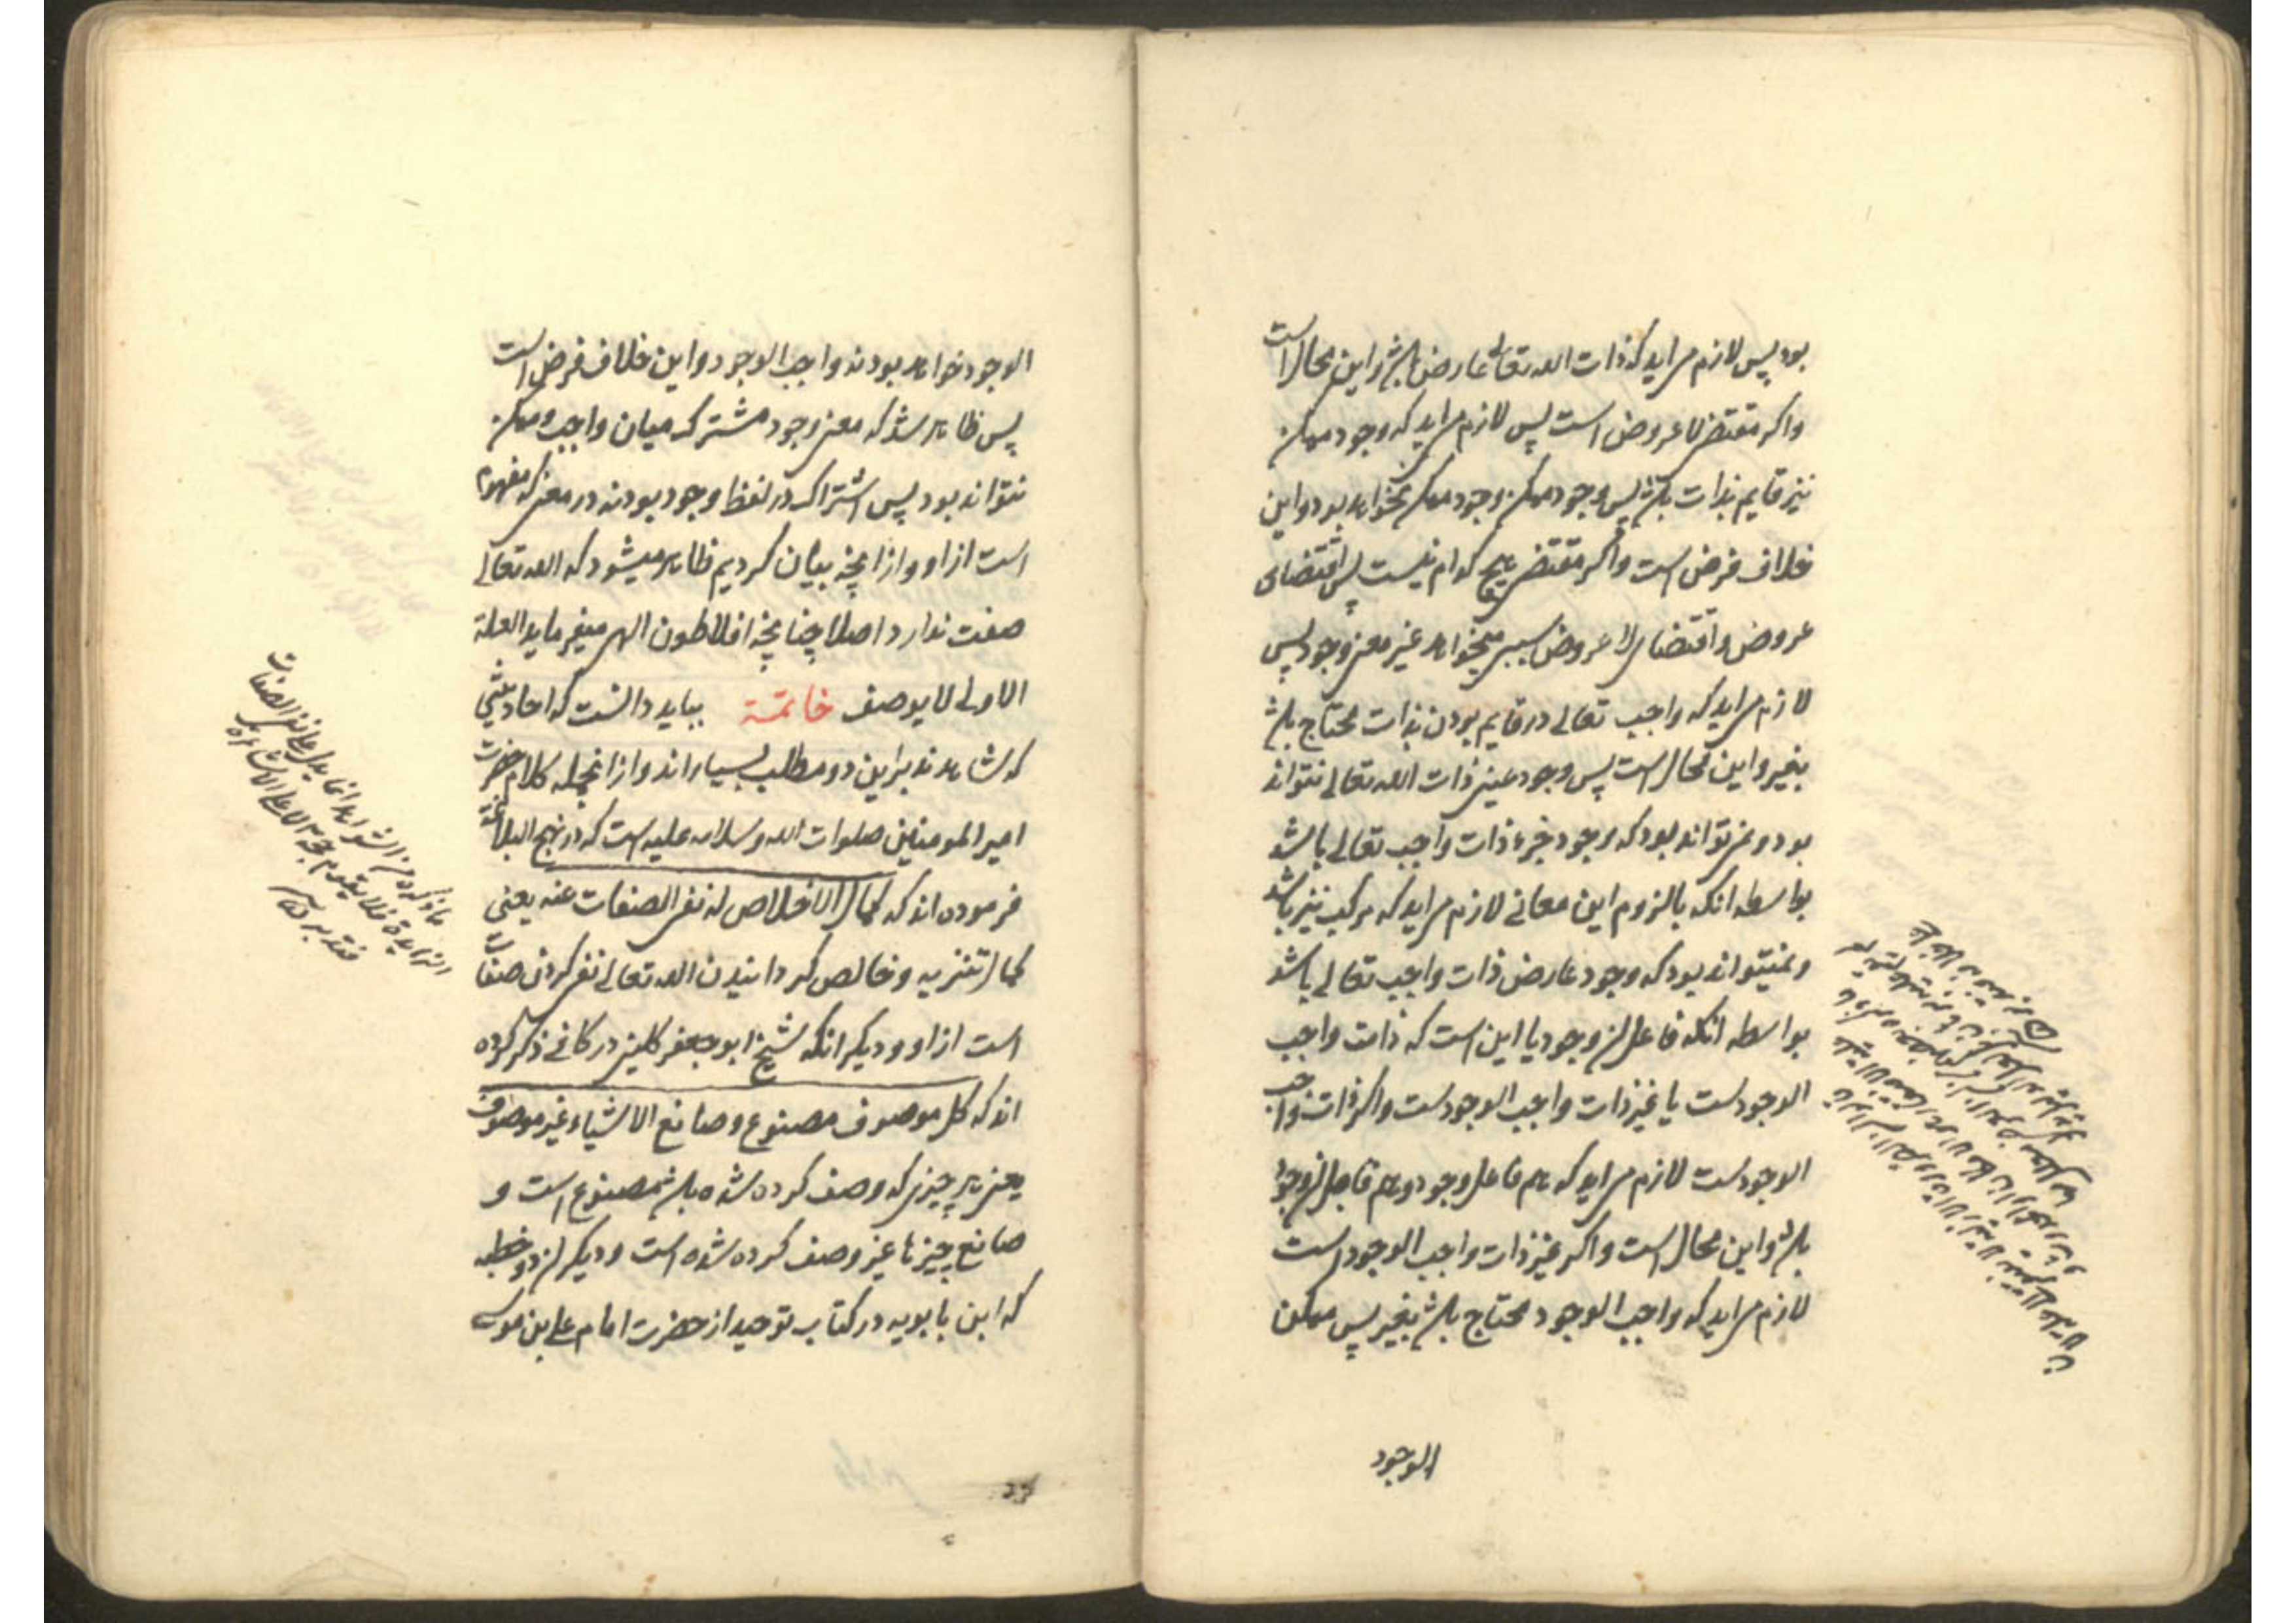 بود پس لازم می‌اید که ذات الله تعالی عارض باشد و این محال است
واکر مقتضی لا عروض است پس لازم می‌اید که وجود ممکن
نیز قایم بذات باشد پس وجود ممکن وجود ممکن نخواهد بود و این
خلاف فرض است واکر مقتضی هیچ کدام نیست پس اقتضای
عروض و اقتضای لا عروض سببی میخواهد غیر معنی وجود پس
لازم می‌اید که واجب تعالی در قایم بودن بذات محتاج باشد
بغیر و این محال است پس وجود عین ذات الله تعالی نتواند
بود و نمی‌تواند بود که وجود جزء ذات واجب تعالی باشد
بواسطه انکه بالزوم این معانی لازم می‌اید که مرکب نیز باشد
و نمیتواند بود که وجود عارض ذات واجب تعالی باشد
بواسطه انکه فاعل ان وجود یا این است که ذات واجب
الوجودست یا غیر ذات واجب الوجودست واکر ذات واجب
الوجودست لازم می‌اید که هم فاعل وجود و هم قابل ان وجود
باشد و این محال است واکر غیر ذات واجب الوجود است
لازم می‌اید که واجب الوجود محتاج باشد بغیر پس ممکن
الوجود
الوجود خواهد بود نه واجب الوجود و این خلاف فرض است
پس ظاهر شد که معنی وجود مشترک میان واجب و ممکن
نتواند بود پس اشتراک در لفظ وجود بود نه در معنی که مفهوم
است از او و از انچه بیان کردیم ظاهر میشود که الله تعالی
صفت ندارد اصلا چنانچه افلاطون الهی میفرماید العلة
الاولی لا یوصف خاتمة بباید دانست که احادیثی
که شاهدند براین دو مطلب بسیاراند و از انجمله کلام حضرت
امیر المومنین صلوات الله وسلامه علیه است که در نهج البلاغه
فرموده اند که کمال الاخلاص له نفی الصفات عنه یعنی
کمال تنزیه و خالص کردانیدن الله تعالی نفی کردن صفات
است از او و دیکر انکه شیخ ابو جعفر کلینی در کافی ذکر کرده
اند که کل موصوف مصنوع وصانع الاشیاء غیر موصوف
یعنی هر چیزی که وصف کرده شده باشد مصنوع است و
صانع چیزها غیر وصف کرده شده است و دیکر از دو خطبه
که ابن بابویه در کتاب توحید از حضرت امام علی بن موسی